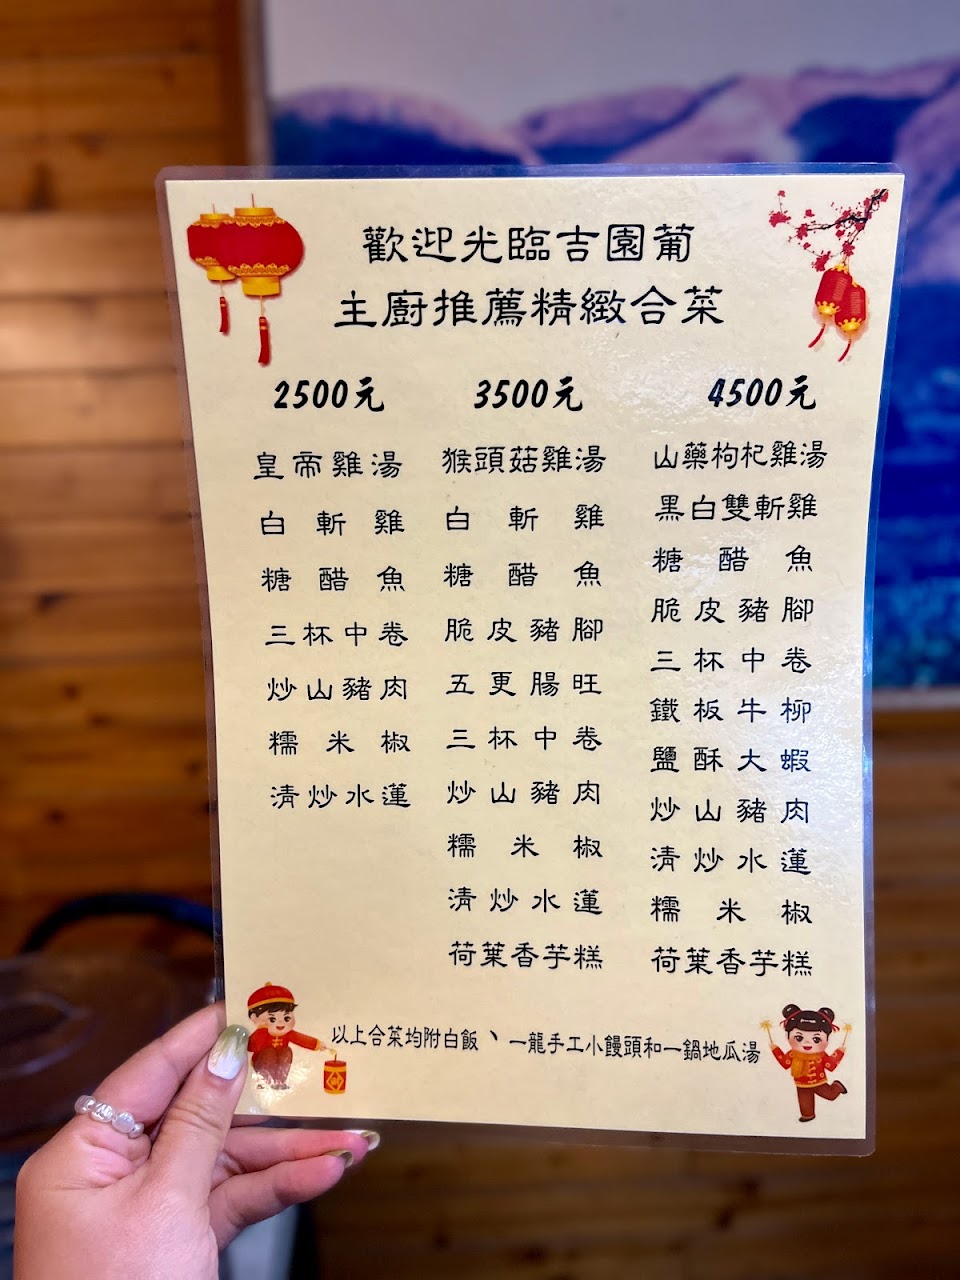 歡迎光臨吉園葡
主廚推薦精緻合菜
2500元
皇帝雞湯
白斬雞
糖醋魚
三杯中卷
炒山豬肉
糯米椒
清炒水蓮
3500元
猴頭菇雞湯
白斬雞
糖醋魚
脆皮豬腳
五更腸旺
三杯中卷
炒山豬肉
糯米椒
清炒水蓮
荷葉香芋糕
4500元
山藥枸杞雞湯
黑白雙斬雞
糖醋魚
脆皮豬腳
三杯中卷
鐵板牛柳
鹽酥大蝦
炒山豬肉
清炒水蓮
糯米椒
荷葉香芋糕
以上合菜均附白飯、一籠手工小饅頭和一鍋地瓜湯